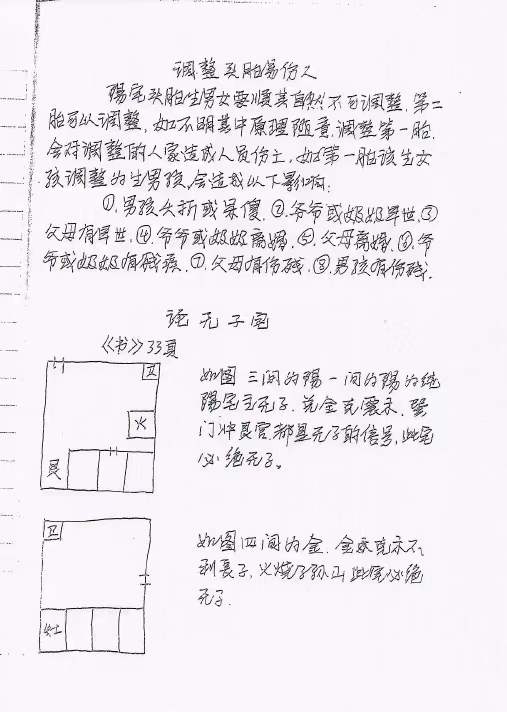 调整头胎易伤人
阳宅头胎生男女要顺其自然不可调整.第二
胎可以调整,如不明其中原理随意调整第一胎.
会对调整的人家造成人员伤亡,如第一胎该生女
孩调整为生男孩,会造成以下影响:
①.男孩夭折或呆傻.②.爷爷或奶奶早世.③
父母有早世.④.爷爷或奶奶离婚.⑤.父母离婚.⑥.爷
爷或奶奶有残疾.⑦.父母有伤残.⑧.男孩有伤残.
论无子宅
《书》33页
卫
火
艮
如图 三间为阳一间为阳为纯
阳宅主无子.兑金克震木.
门冲艮宫都是无子的信号,此宅
必绝无子。
卫
灶
如图四间为金.金来克木不
利长子,火烧子孙山此宅必绝
无子.